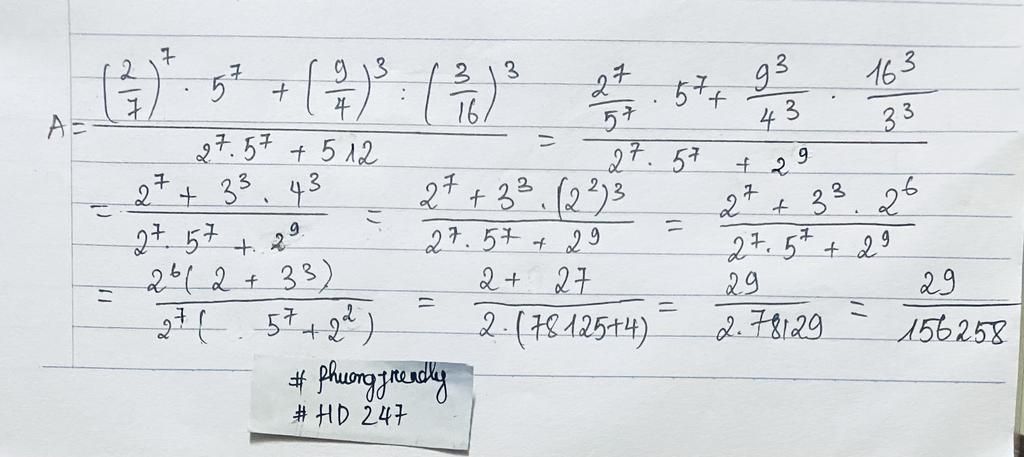 A = ((2/7)^7 · 5^7 + (9/4)^3 : (3/16)^3) / (2^7 · 5^7 + 512) = (2^7/5^7 · 5^7 + 9^3/4^3 · 16^3/3^3) / (2^7 · 5^7 + 2^9)
= (2^7 + 3^3 · 4^3) / (2^7 · 5^7 + 2^9) = (2^7 + 3^3 · (2^2)^3) / (2^7 · 5^7 + 2^9) = (2^7 + 3^3 · 2^6) / (2^7 · 5^7 + 2^9)
= 2^6(2 + 3^3) / 2^7(5^7 + 2^2) = (2 + 27) / (2.(78125+4)) = 29 / (2.78129) = 29 / 156258
# phuongfriendly
# HD 247